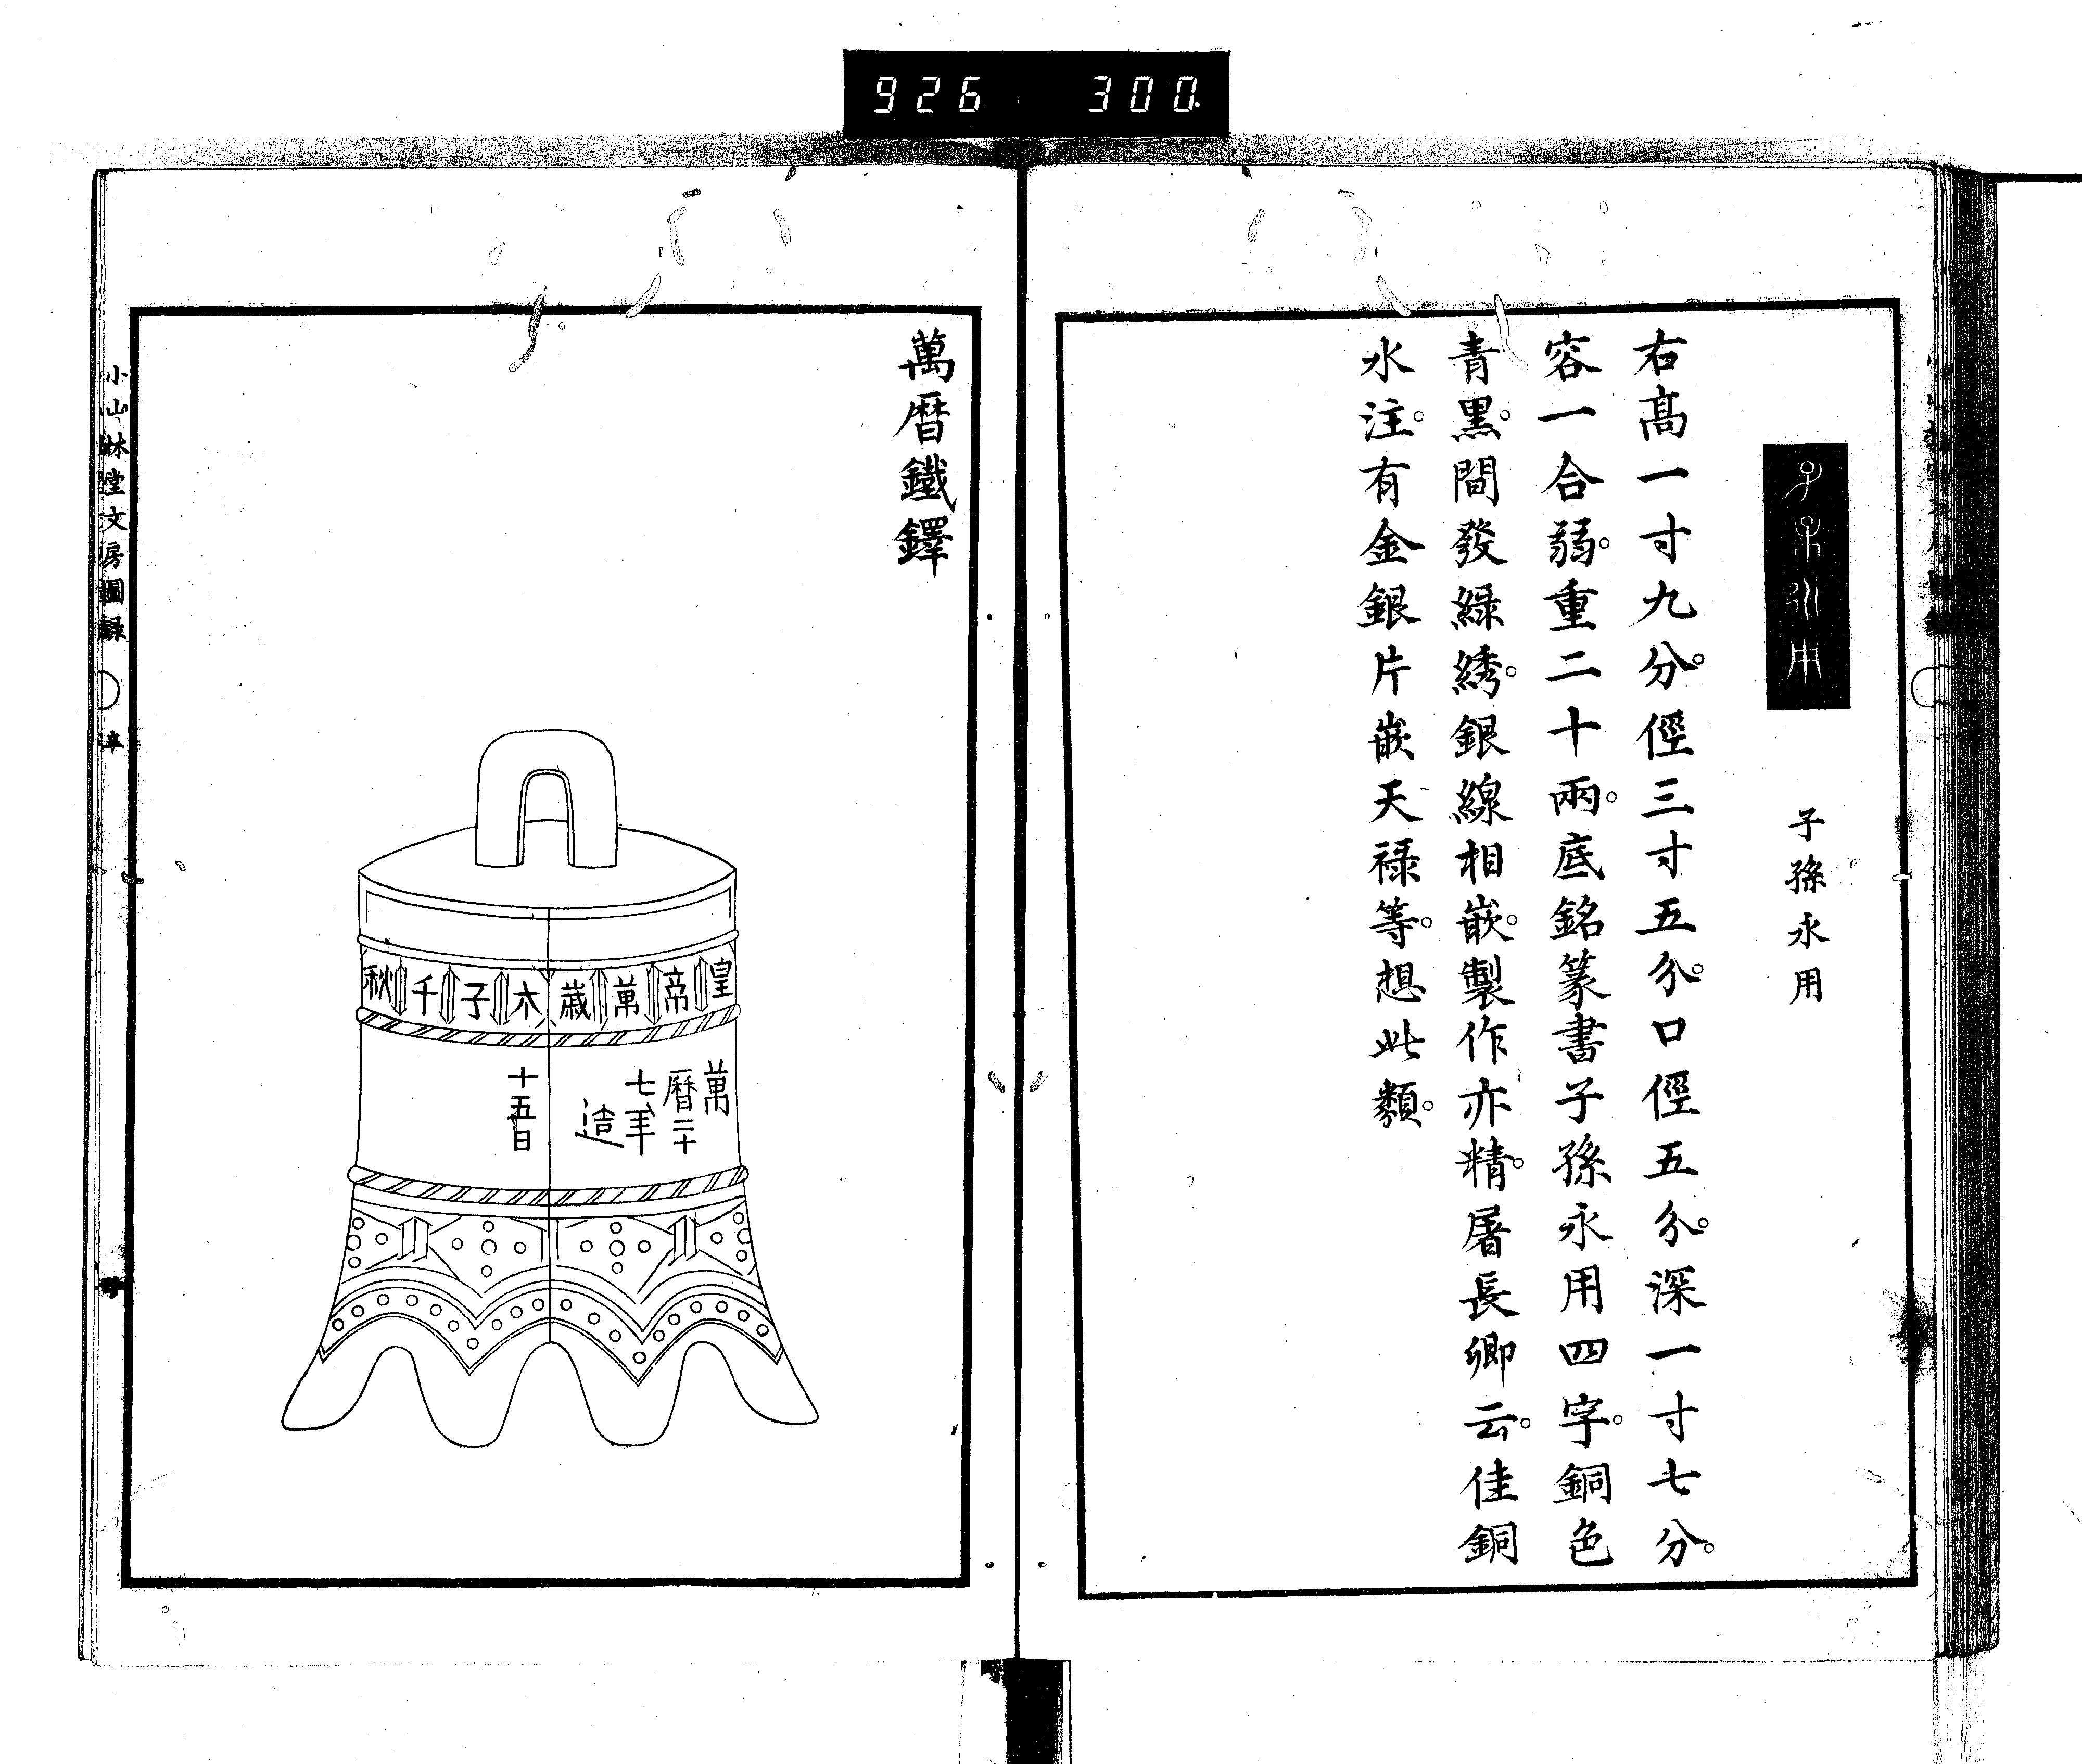 926 300
子孫永用
子孫永用
右高一寸九分。徑三寸五分。口徑五分。深一寸七分。
容一合弱。重二十兩。底銘篆書子孫永用四字。銅色
青黑。間發綠綉。銀線相嵌。製作亦精。屠長卿云。佳銅
水注。有金銀片嵌天禄等。想此類。
萬曆鐵鐸
皇帝萬歲太子千秋
萬
曆二十
七年
造
十五日
小山林堂文房圖錄